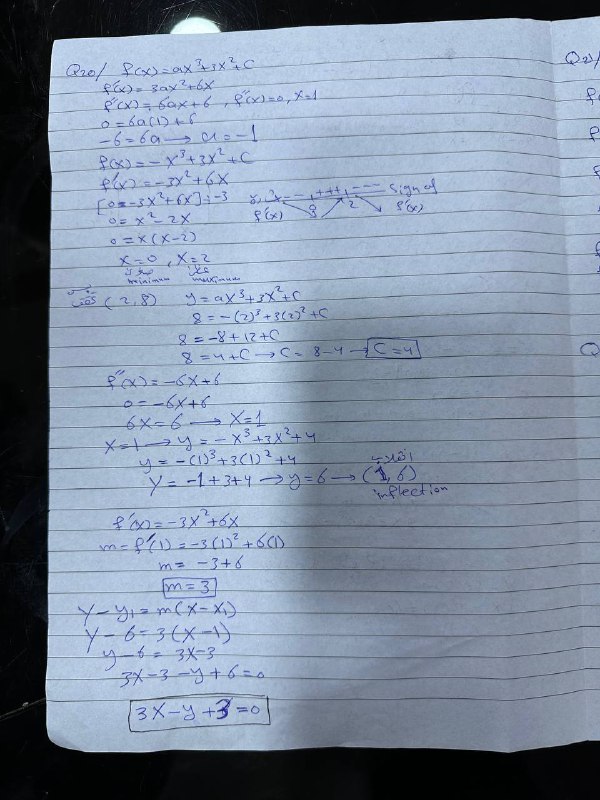 Q20/ f(x)=ax³+3x²+C
f'(x)=3ax²+6x
f''(x)=6ax+6 , f''(x)=0, x=1
0=6a(1)+6
-6=6a → a=-1
f(x)=-x³+3x²+C
f'(x)=-3x²+6x
[0=-3x²+6x]÷-3
--- +++ --- sign of
f'(x) 0 2 f'(x)
0=x²-2x
0=x(x-2)
x=0 , x=2
minimum maximum
(2,8) y=ax³+3x²+C
8=-(2)³+3(2)²+C
8=-8+12+C
8=4+C → C=8-4 → C=4
f''(x)=-6x+6
0=-6x+6
6x=6 → x=1
x=1 → y=-x³+3x²+4
y=-(1)³+3(1)²+4
y=-1+3+4 → y=6 → (1,6)
inflection
f'(x)=-3x²+6x
m=f'(1)=-3(1)²+6(1)
m=-3+6
m=3
y-y₁=m(x-x₁)
y-6=3(x-1)
y-6=3x-3
3x-3-y+6=0
3x-y+3=0
Q21/
Q